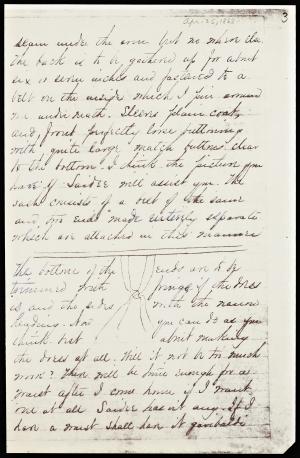 Apr. 25, 1862
3
seam under the arm but no where else
The back is to be gathered up for about
six or seven inches and fastened to a
belt on the inside which I pin around
me underneath. Sleeves plain coat,
and, front perfectly loose buttoning
with quite large "match buttons" clear
to the bottom. I think the picture you
have of Saidee will assist you. The
sash consists of a belt of the same
and, two ends made entirely separate
which are attached in this manner
The bottom of the ends are to be
trimmed with fringe if the dress
is, and the sides with the narrow
Now you can do as you
think best about making
the dress at all. Will it not be too much
work? There will be time enough for a
waist after I come home if I want
one at all. Saidee hasnt any. If I
have a waist shall have it garibaldi